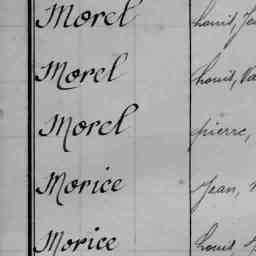 Morel Louis, Je
Morel Louis, Va
Morel pierre,
Morice Jean,
Morice Louis,